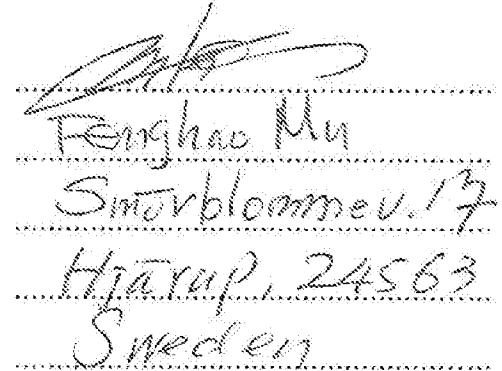 Fenghao Mu
Smörblommev. 17
Hjärup, 24563
Sweden